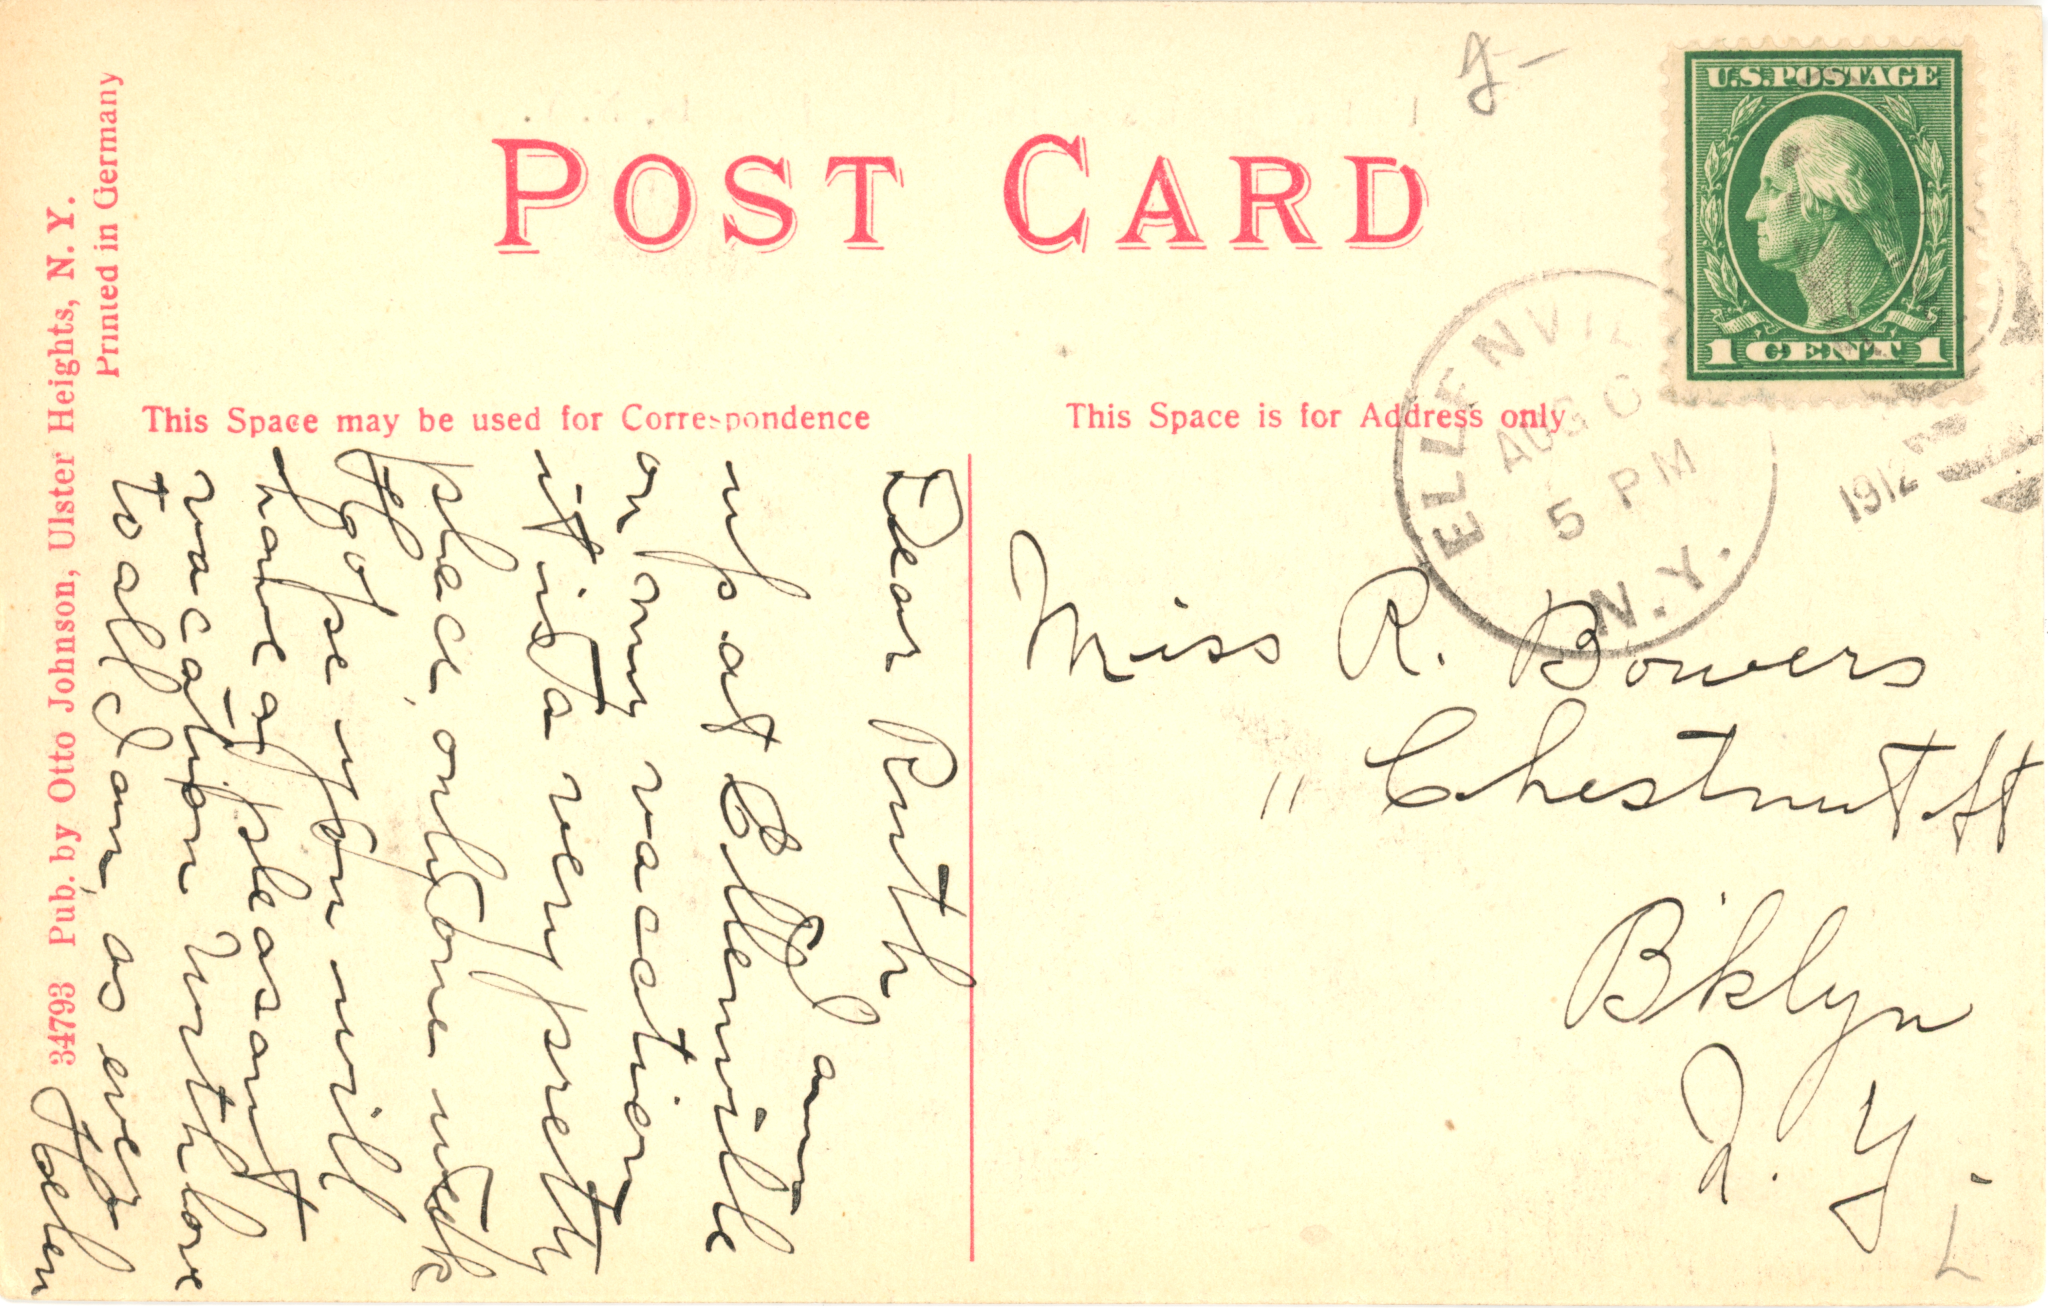 POST CARD
U.S. POSTAGE
1 CENT 1
ELLENVILLE
AUG
5 PM
N.Y.
1912
This Space may be used for Correspondence
This Space is for Address only
34793 Pub. by Otto Johnson, Ulster Heights, N. Y.
Printed in Germany
Dear Ruth
I am
up at Ellenville
on my vacation
it is a very pretty
place, only one week
Hope you will
have a pleasant
vacation with love
to all I am, as ever
Helen
Miss R. Bowers
11 Chestnut St
B'klyn
N. Y.